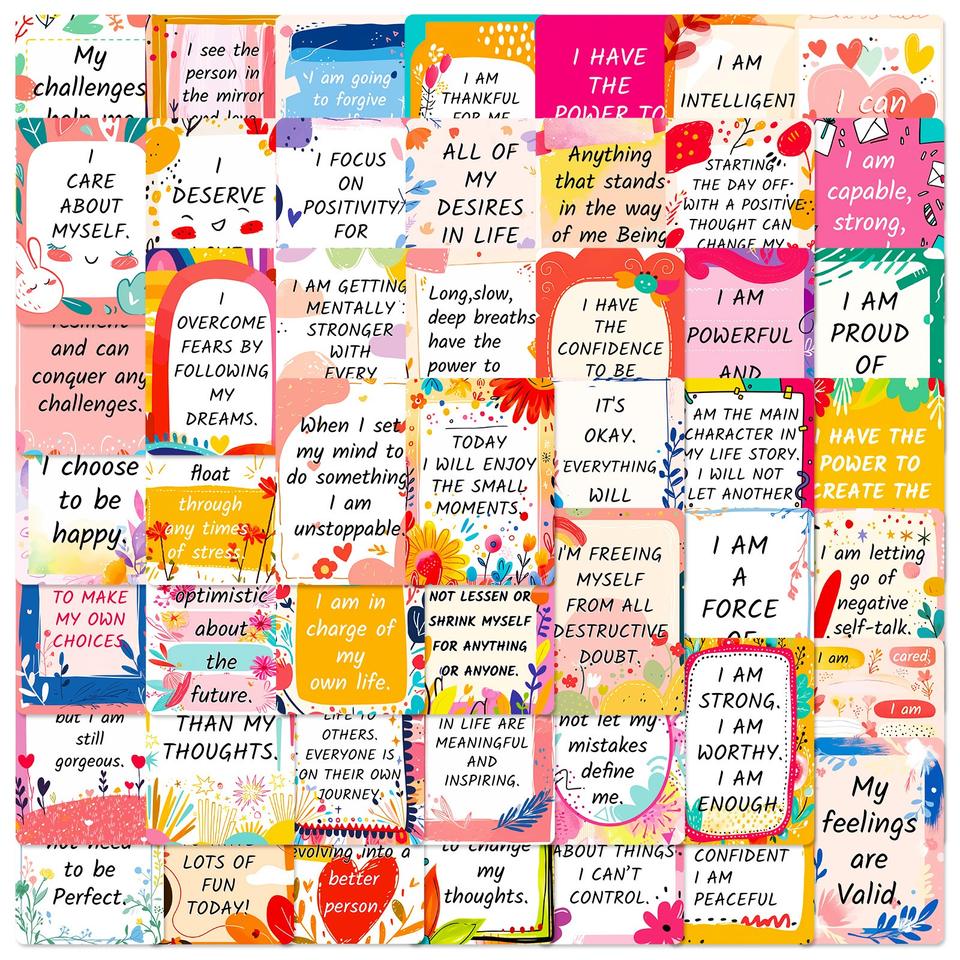 My
challenges
help me
I see the
person in
the mirror
and love
I am going
to forgive
I AM
THANKFUL
FOR ME
I HAVE
THE
POWER TO
I AM
INTELLIGENT
I can
I
CARE
ABOUT
MYSELF.
I
DESERVE
LOVE
I FOCUS
ON
POSITIVITY
FOR
ALL OF
MY
DESIRES
IN LIFE
Anything
that stands
in the way
of me Being
STARTING
THE DAY OFF
WITH A POSITIVE
THOUGHT CAN
CHANGE MY
I am
capable,
strong,
resilient
and can
conquer any
challenges.
I
OVERCOME
FEARS BY
FOLLOWING
MY
DREAMS.
I AM GETTING
MENTALLY
STRONGER
WITH
EVERY
Long,slow,
deep breaths
have the
power to
I HAVE
THE
CONFIDENCE
TO BE
I AM
POWERFUL
AND
I AM
PROUD
OF
I choose
to be
happy.
float
through
any times
of stress.
When I set
my mind to
do something
I am
unstoppable.
TODAY
I WILL ENJOY
THE SMALL
MOMENTS.
IT'S
OKAY.
EVERYTHING
WILL
I AM THE MAIN
CHARACTER IN
MY LIFE STORY.
I WILL NOT
LET ANOTHER
I HAVE THE
POWER TO
CREATE THE
TO MAKE
MY OWN
CHOICES
optimistic
about
the
future.
I am in
charge of
my
own life.
NOT LESSEN OR
SHRINK MYSELF
FOR ANYTHING
OR ANYONE.
I'M FREEING
MYSELF
FROM ALL
DESTRUCTIVE
DOUBT.
I AM
A
FORCE
OF
I am letting
go of
negative
self-talk.
but I am
still
gorgeous.
THAN MY
THOUGHTS.
LIFE TO
OTHERS.
EVERYONE IS
ON THEIR OWN
JOURNEY.
IN LIFE ARE
MEANINGFUL
AND
INSPIRING.
not let my
mistakes
define
me.
I AM
STRONG.
I AM
WORTHY.
I AM
ENOUGH.
I am
cared,
I am
not need
to be
Perfect.
LOTS OF
FUN
TODAY!
evolving into a
better
person.
to change
my
thoughts.
ABOUT THINGS
I CAN'T
CONTROL.
CONFIDENT
I AM
PEACEFUL
My
feelings
are
Valid.